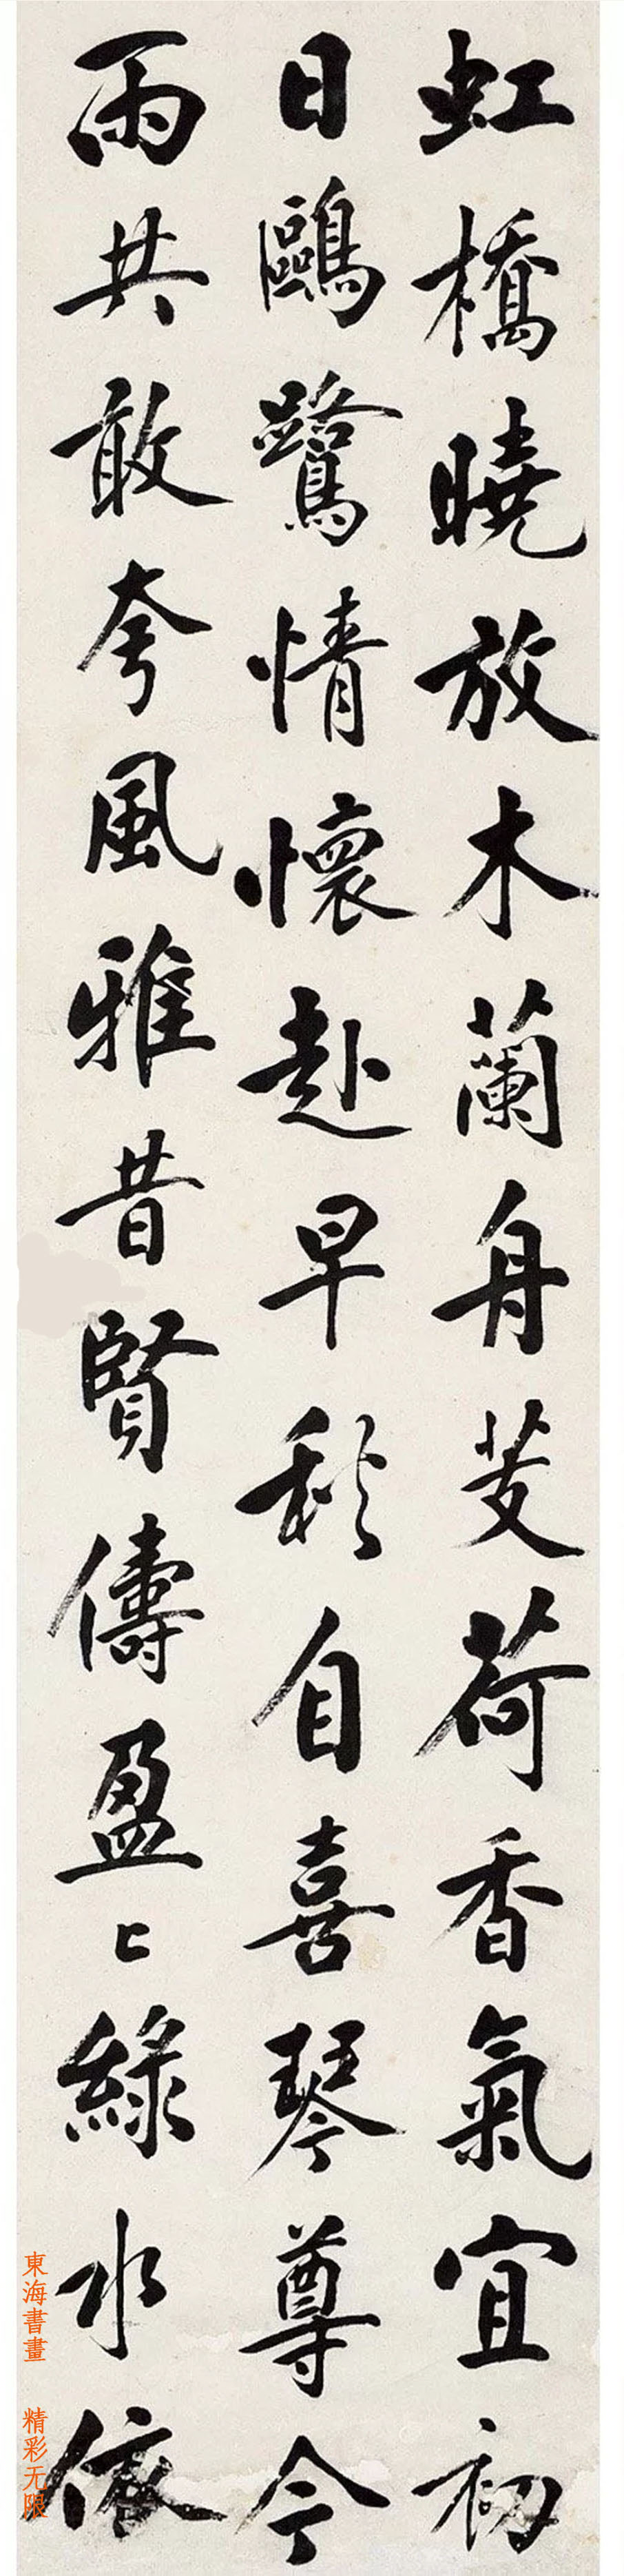 虹橋曉放木蘭舟芰荷香氣宜初
日鷗鷺情懷赴早秋自喜琴尊今
雨共敢夸風雅昔賢儔盈〻綠水依
東海書畫 精彩无限